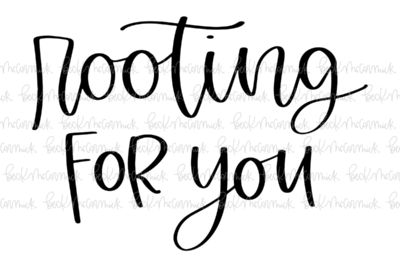 rooting
FOR you